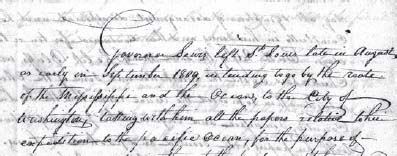 Governor Lewis left St Louis late in August
or early in September 1809, intending to go by the route
of the Mississippi and the Ocean, to the City of
Washington, taking with him all the papers relative to his
expedition to the pacific Ocean, for the purpose of